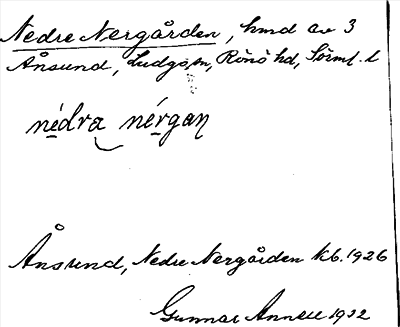 Nedre Nergården, hmd av 3
Ånsund, Ludgo sn, Rönö hd, Sörml. l
nédra nérgaɲ
Ånsund, Nedre Nergården Kb. 1926
Gunnar Annell 1932